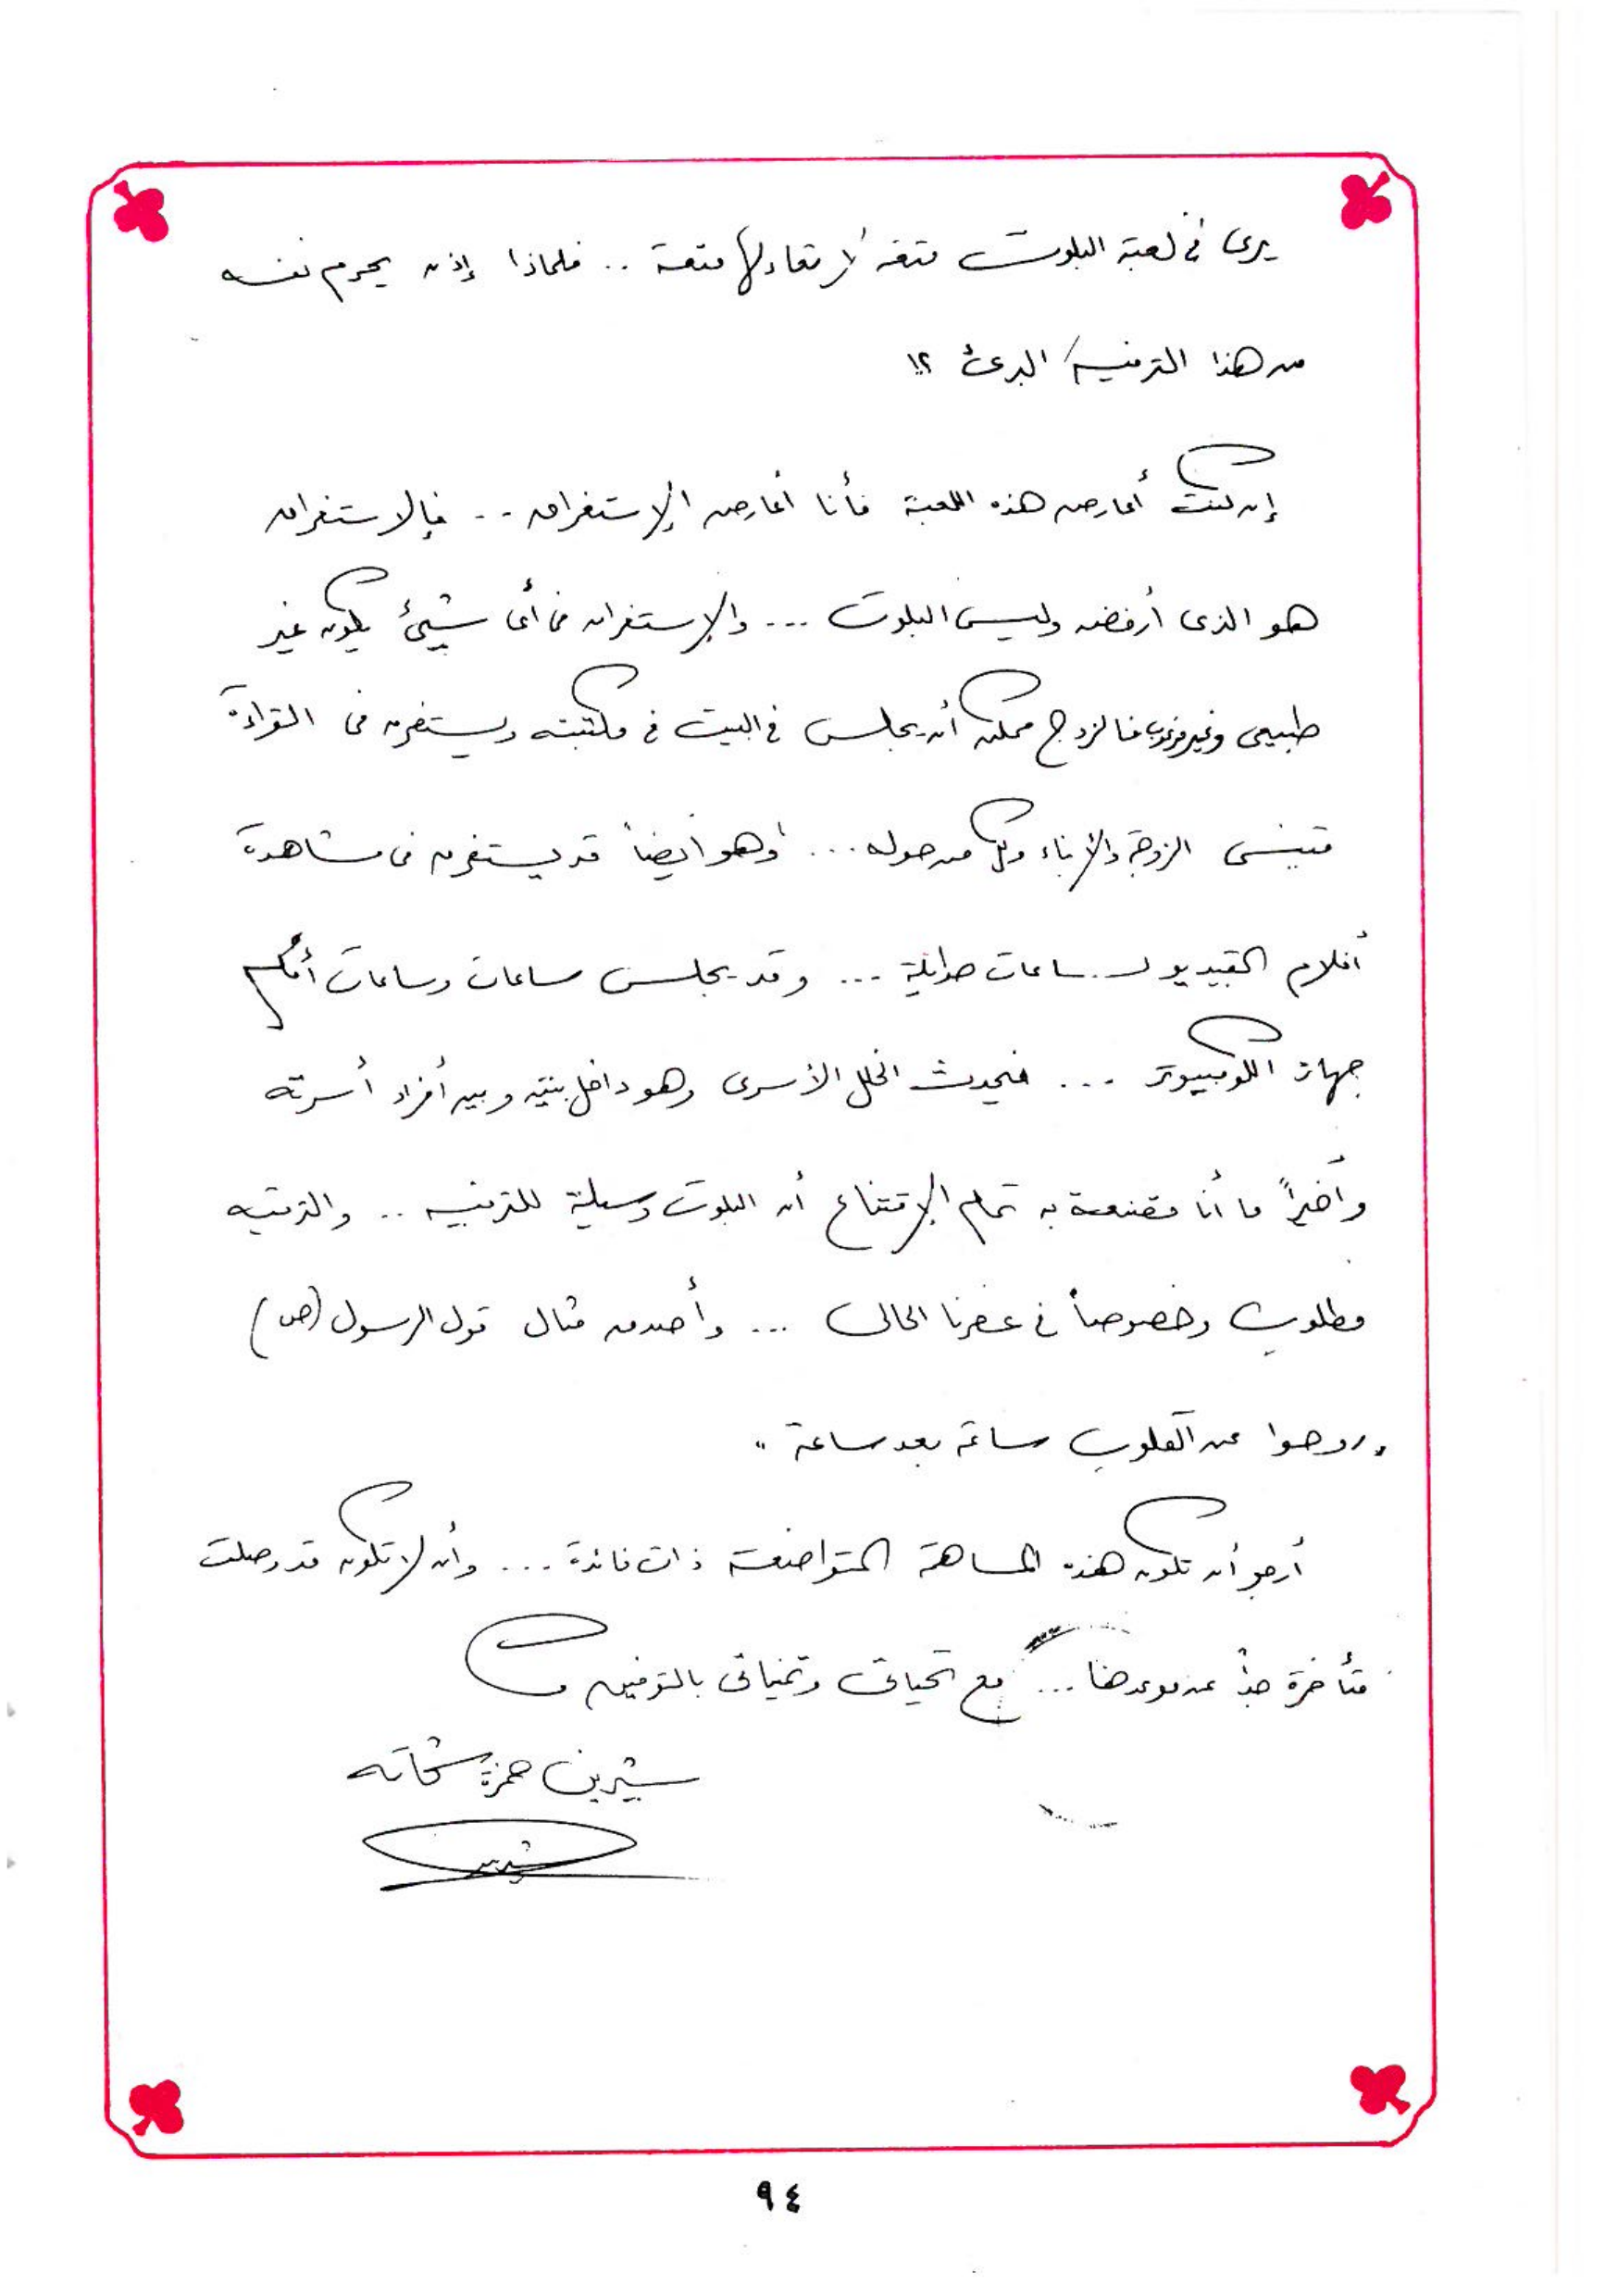 يرى في لعبة البلوت متعة لا تعادلها متعة .. فلماذا إذن يحرم نفسه
من هذا الترفيه البرئ ؟!
إن كنت أعارض هذه اللعبة فأنا أعارض الإستغراق .. فالاستغراق
هو الذى أرفضه وليس البلوت ... والإستغراق فى أى شيئ يكون غير
طبيعى وغير مرغوب فالزوج ممكن أن يجلس في البيت في مكتبته ويستغرق فى القراءة
فينسى الزوجة والأبناء وكل من حوله ... وهو أيضاً قد يستغرق فى مشاهدة
أفلام الفيديو لساعات طويلة ... وقد يجلس ساعات وساعات أمام
جهاز الكومبيوتر ... فيحدث الخلل الأسرى وهو داخل بيته وبين أفراد أسرته
وأخيراً ما أنا مقتنعة به تمام الإقتناع أن البلوت وسيلة للترفيه .. والترفيه
مطلوب وخصوصاً في عصرنا الحالى ... وأصدق مثال قول الرسول (ص)
" روحوا عن القلوب ساعة بعد ساعة "
أرجو أن تكون هذه المساهمة المتواضعة ذات فائدة ... وأن لا تكون قد وصلت
متأخرة جداً عن موعدها ... مع تحياتى وتمنياتى بالتوفيق
شيرين حمزة شحاته
شيرين
٩٤